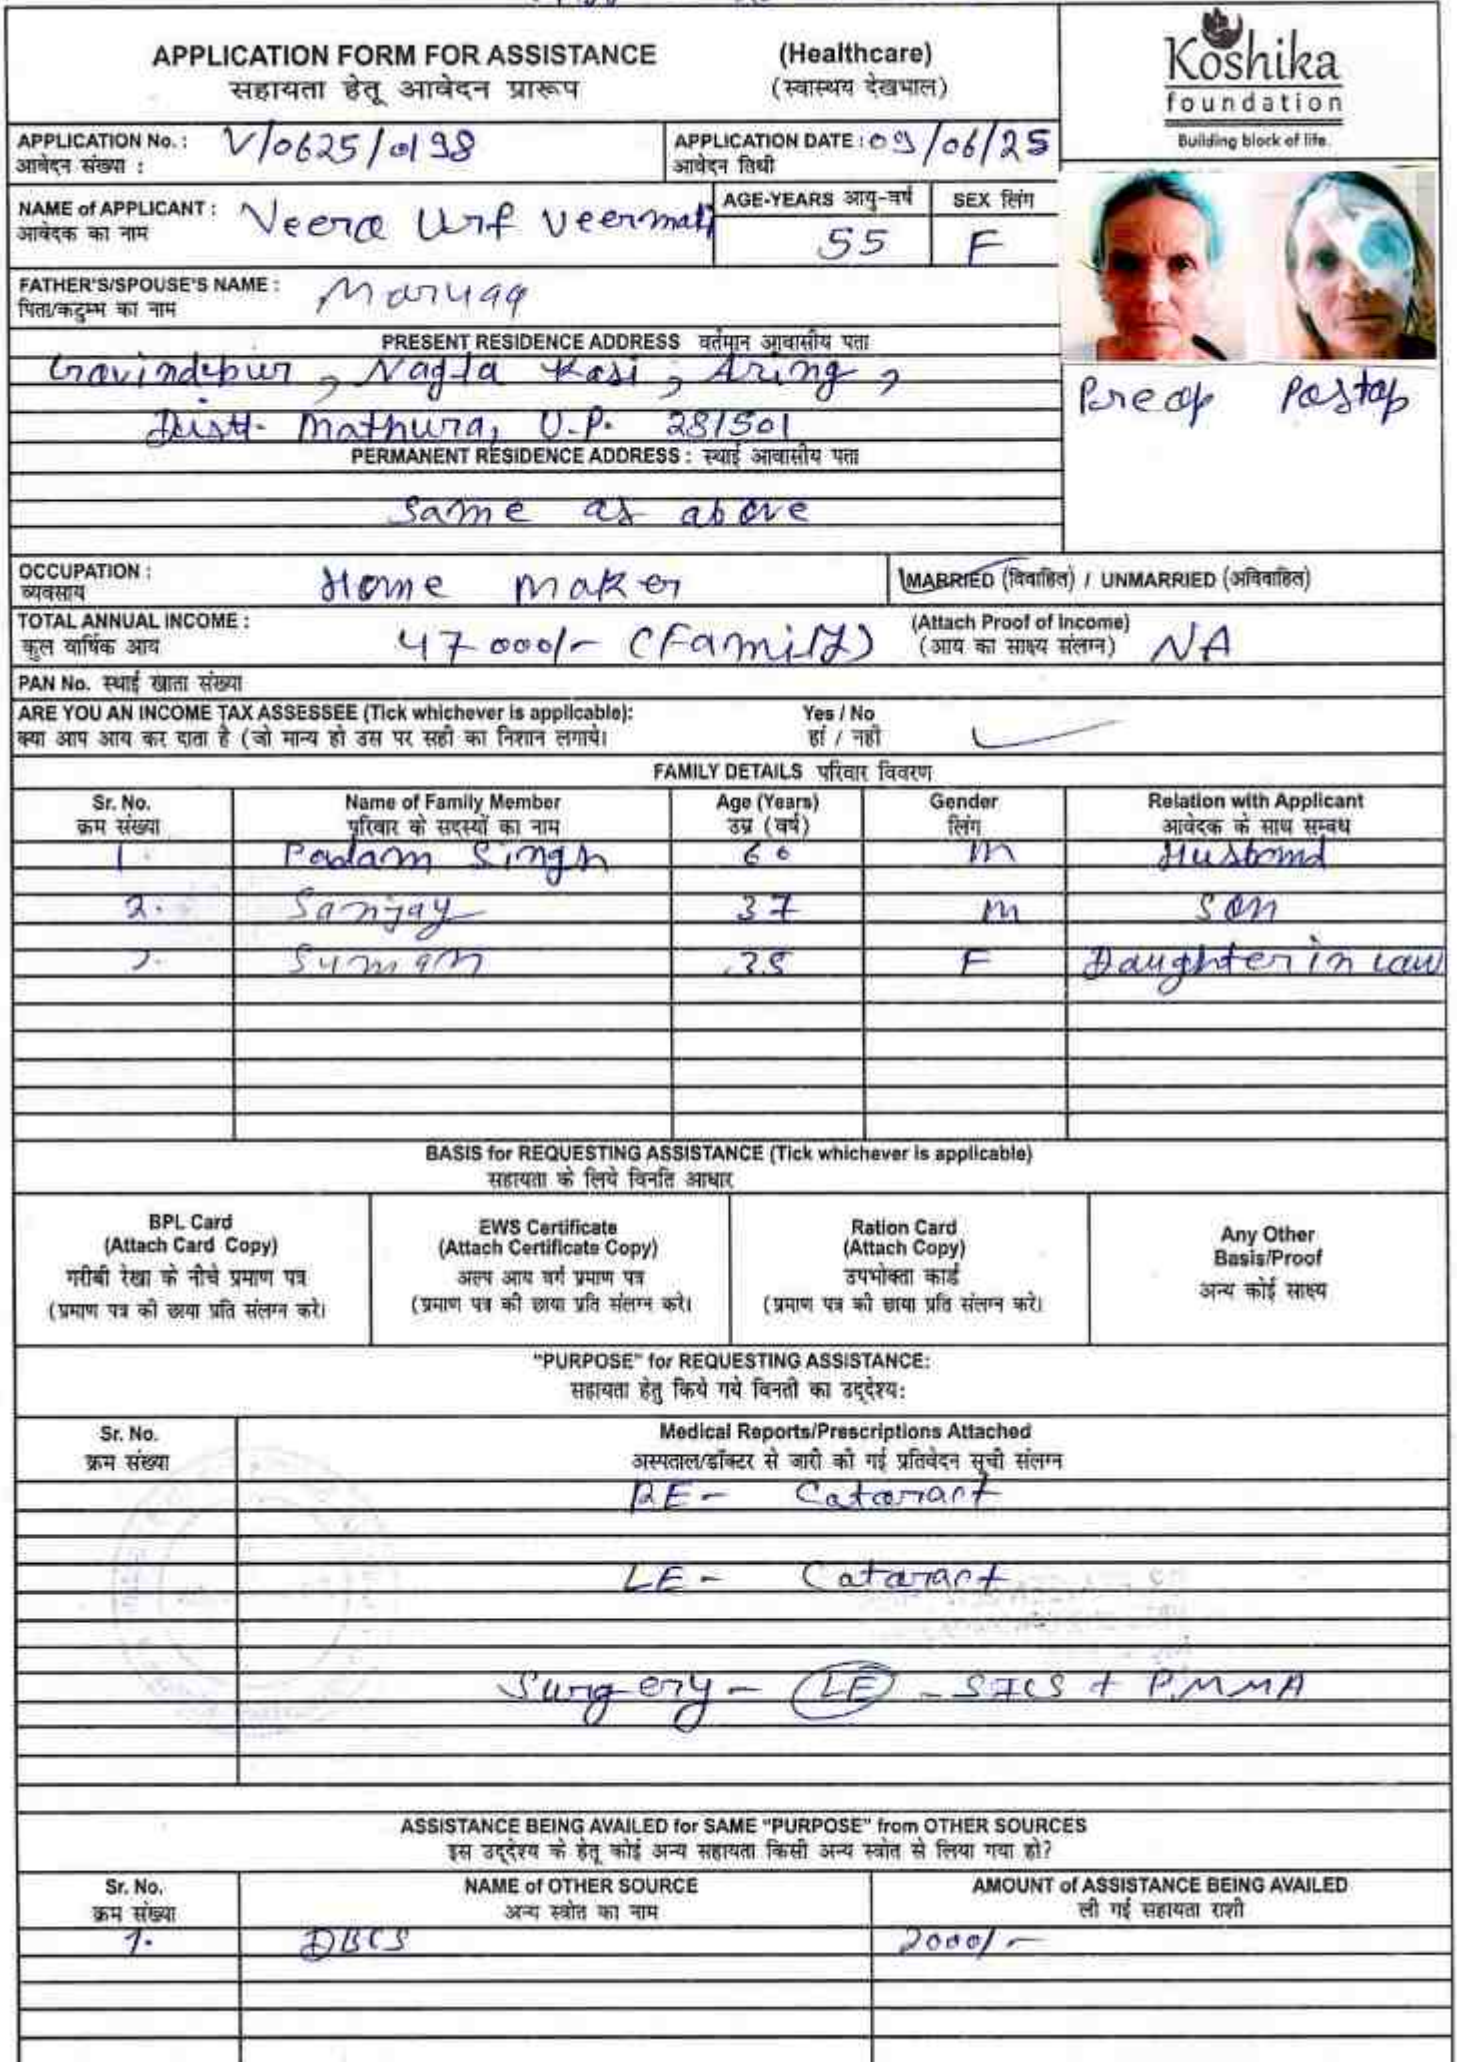 APPLICATION FORM FOR ASSISTANCE (Healthcare)
सहायता हेतू आवेदन प्रारूप (स्वास्थय देखभाल)
Koshika
foundation
Building block of life.
APPLICATION No. : V/0625/0198
आवेदन संख्या :
APPLICATION DATE : 09/06/25
आवेदन तिथी
NAME of APPLICANT : Veera Urf Veermati
आवेदक का नाम
AGE-YEARS आयु-वर्ष
55
SEX लिंग
F
FATHER'S/SPOUSE'S NAME :
पिता/कटुम्भ का नाम
PRESENT RESIDENCE ADDRESS वर्तमान आवासीय पता
Govindpur, Nagla Kasi, Aring,
Distt. Mathura, U.P. 281501
Preop Postop
PERMANENT RESIDENCE ADDRESS : स्थाई आवासीय पता
Same as above
OCCUPATION : Home Maker
व्यवसाय
MARRIED (विवाहित) / UNMARRIED (अविवाहित)
TOTAL ANNUAL INCOME : 47000/- (Family)
कुल वार्षिक आय
(Attach Proof of Income) NA
(आय का साक्ष्य संलग्न)
PAN No. स्थाई खाता संख्या
ARE YOU AN INCOME TAX ASSESSEE (Tick whichever is applicable): Yes / No
क्या आप आय कर दाता है (जो मान्य हो उस पर सही का निशान लगाये। हां / नहीं
FAMILY DETAILS परिवार विवरण
Sr. No. Name of Family Member Age (Years) Gender Relation with Applicant
क्रम संख्या परिवार के सदस्यों का नाम उम्र (वर्ष) लिंग आवेदक के साथ सम्बध
1. Padam Singh 60 M Husband
2. Sanjay 37 M Son
Suman 35 F Daughter in Law
BASIS for REQUESTING ASSISTANCE (Tick whichever is applicable)
सहायता के लिये विनति आधार
BPL Card
(Attach Card Copy)
गरीबी रेखा के नीचे प्रमाण पत्र
(प्रमाण पत्र की छाया प्रति संलग्न करे।
EWS Certificate
(Attach Certificate Copy)
अल्प आय वर्ग प्रमाण पत्र
(प्रमाण पत्र की छाया प्रति संलग्न करे।
Ration Card
(Attach Copy)
उपभोक्ता कार्ड
(प्रमाण पत्र की छाया प्रति संलग्न करे।
Any Other
Basis/Proof
अन्य कोई साक्ष्य
"PURPOSE" for REQUESTING ASSISTANCE:
सहायता हेतु किये गये विनती का उद्देश्य:
Sr. No. Medical Reports/Prescriptions Attached
क्रम संख्या अस्पताल/डॉक्टर से जारी की गई प्रतिवेदन सूची संलग्न
RE - Cataract
LE - Cataract
Surgery - LE - SICS + PMMA
ASSISTANCE BEING AVAILED for SAME "PURPOSE" from OTHER SOURCES
इस उद्देश्य के हेतू कोई अन्य सहायता किसी अन्य स्त्रोत से लिया गया हो?
Sr. No. NAME of OTHER SOURCE AMOUNT of ASSISTANCE BEING AVAILED
क्रम संख्या अन्य स्त्रोत का नाम ली गई सहायता राशी
1. DBCS 2000/-